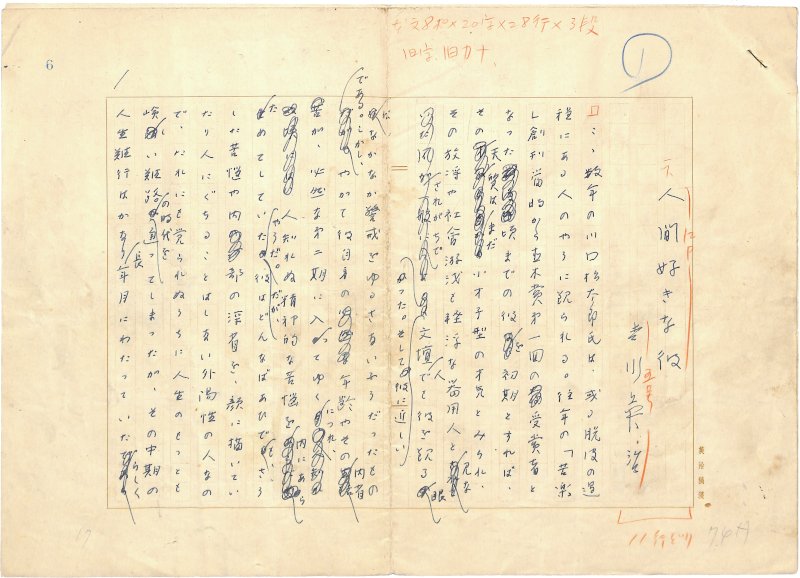 本文8ポ×20字×28行×3段
旧字、旧カナ
1
6
人間好きな彼
吉川英治
こゝ数年の川口松太郎氏は、或る脱皮の過
程にある人のやうに観られる。往年の「苦楽
」創刊当時から直木賞第一回の受賞者と
なった頃までの彼を初期とすれば、
その天質はまだ小才子型の才児とみられ、
その放埓や社会游泳も軽淳な器用人と見な
されがちで文壇人でも彼を観る眼
かった。そして彼に近しい
はなかなか警戒をゆるさないふうだったもの
である。しかし、
やがて彼自身の年齢やその内省
苦が、必然な第二期に入ってゆくにつれ、内にあら
た人知れぬ精神的な苦悩を
やうだ。だが、
せめてしていた彼はどんなばあひでも、さう
した苦悩や内部の深省を、顔に描いてい
たり人にぐちることはしない外濶性の人なの
で、たれにも覚られぬうちに人生のもっとも
嶮しい難路の時代を通ってしまったが、その中期の
人生難行はかなり長年月にわたっていたらしく
英治稿箋
11行どり
17